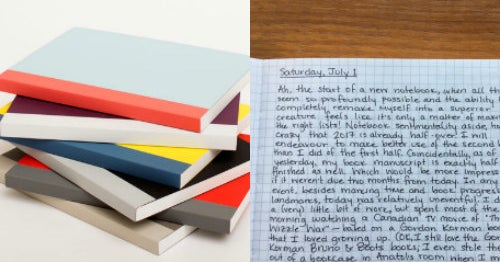 Saturday, July 1
Ah, the start of a new notebook, when all th
seem so profoundly possible and the ability
completely remake myself into a superior
creature feels like it's only a matter of mak
the right lists! Notebook sentimentality aside, ho
crazy that 2017 is already half-over! I will
endeavour to make better use of the second h
than I did of the first half. Coincidentally, as of
yesterday, my book manuscript is exactly half
finished as well. Which would be more impress
if it weren't due two months from today. In any
event, besides moving time and book progress
landmarks, today was relatively uneventful. I d
a (very) little bit of work, but spent most of the
morning watching a Canadian TV movie of "Th
Wizzle War" – based on a Gordon Korman bo
that I loved growing up. (OK, I still love the Go
Korman Bruno & Boots books; I even stole the
out of a bookcase in Anatoli's room when I